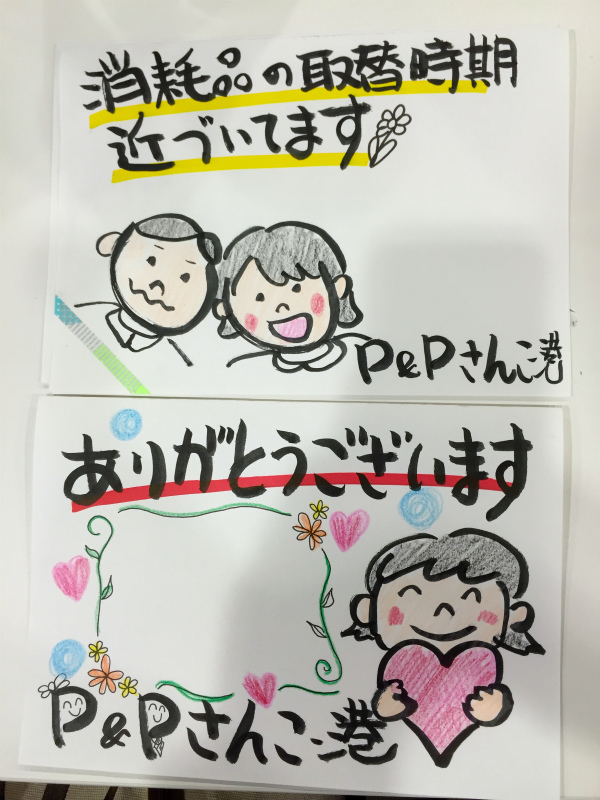 消耗品の取替時期
近づいてます
P&Pさんこ港
ありがとうございます
P&Pさんこ港